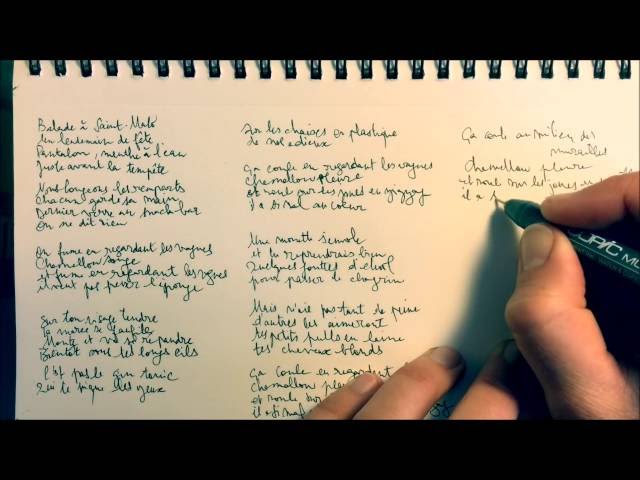 Balade à Saint-Malo
Un lendemain de fête
Pantalon, menthe à l'eau
Juste avant la tempête
Nous longeons les remparts
Chacun garde sa main
Dernier verre au snack-bar
On ne dit rien
On fume en regardant les vagues
Chamellow songe
et fume en regardant les vagues
il veut pas poser l'éponge
Sur ton visage tendre
la marée se faufile
Monte et va se répandre
Bientôt sous tes longs cils
C'est pas le gin tonic
Qui te pique les yeux
Sur les chaises en plastique
de nos adieux
ça coule en regardant les vagues
Chamellow pleure
et roule sur les joues en zigzag
il a si mal au coeur
Une mouth semole
et tu reprendrais bien
Quelques gouttes d'alcool
pour passer le chagrin
Mais n'aie pas tant de peine
d'autres les aimeront
tes petits pulls en laine
tes cheveux blonds
ça coule en regardant
chamellow pleure
et roule sur
il a si mal
ça coule au milieu des
murailles
Chamellow pleure
et roule sur les joues
il a s
COPIC MU